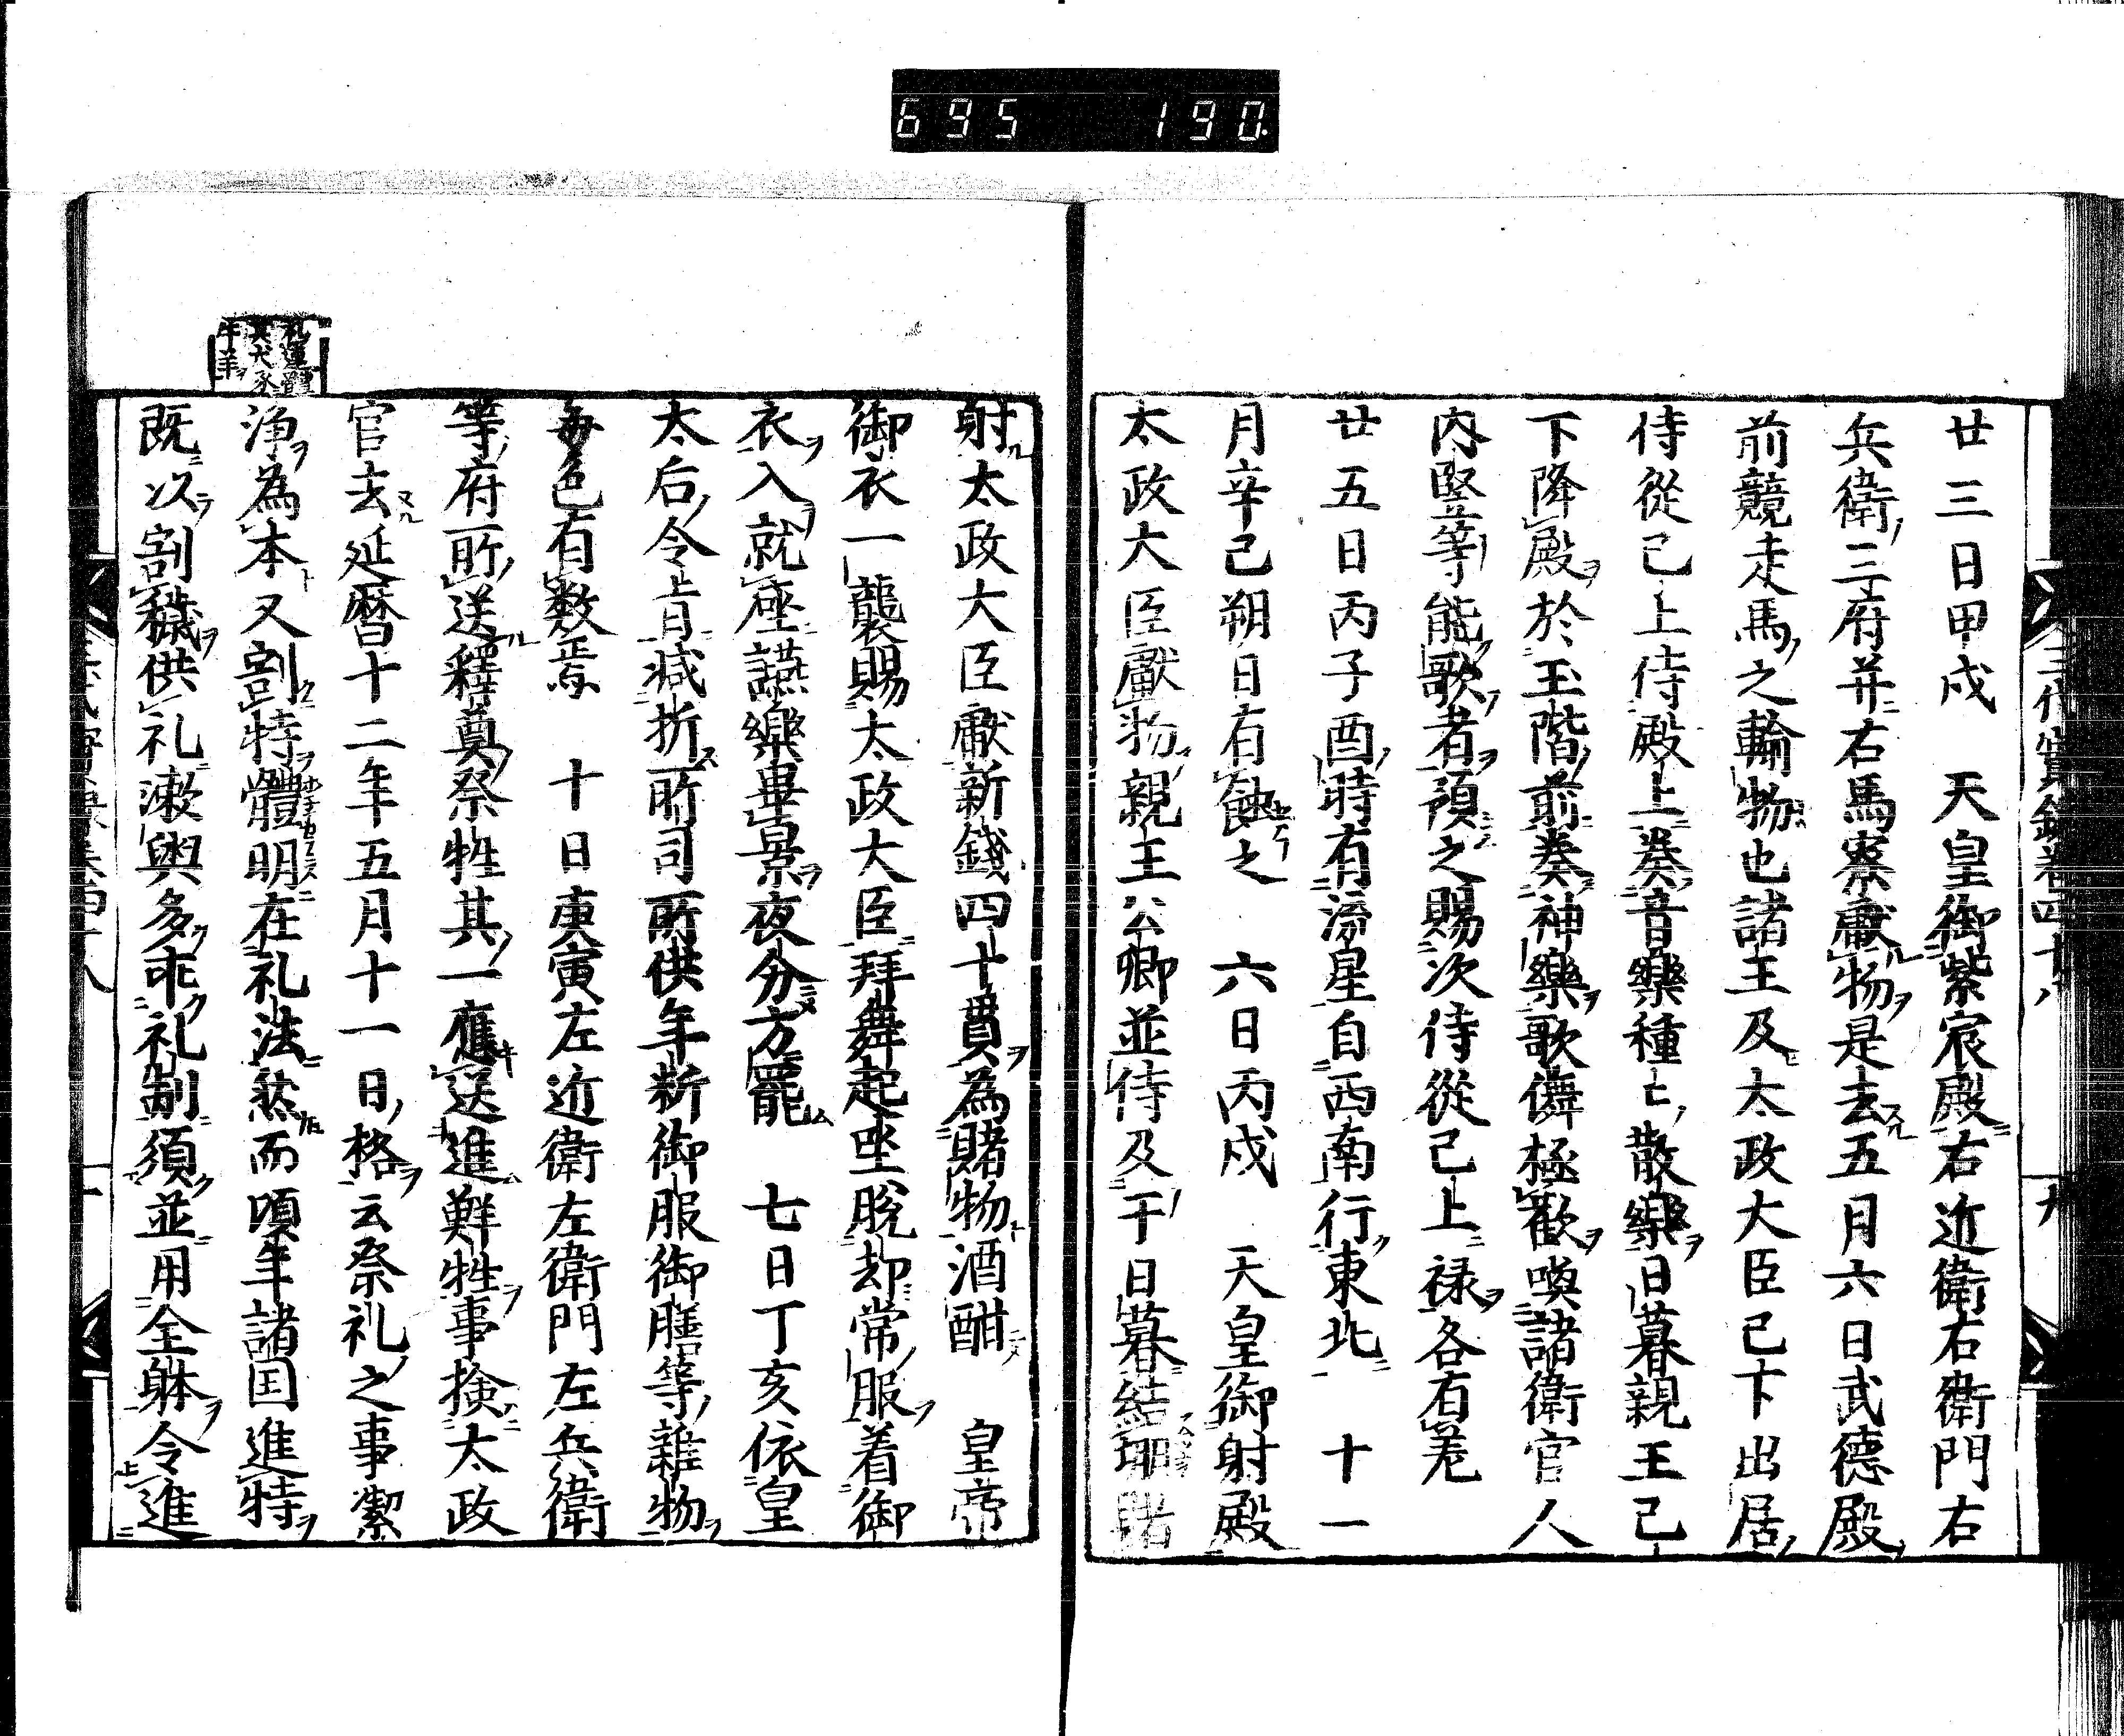 695 190.
廿三日甲戌 天皇御紫宸殿右近衛右衛門右
兵衛三府并右馬寮獻物是去五月六日武德殿
前競走馬之輸物也諸王及太政大臣已下出居
侍從已上侍殿上奏音樂種〻散樂日暮親王已
下降殿於玉階前奏神樂歌儛極歡喚諸衛官人
內竪等能歌者預之賜次侍從已上祿各有差
廿五日丙子酉時有流星自西南行東北 十一
月辛巳朔日有蝕之 六日丙戌 天皇御射殿
太政大臣獻物親王公卿並侍及于日暮結堋賭
射太政大臣獻新錢四十貫為賭物酒酣 皇帝
御衣一襲賜太政大臣拜舞起坐脫却常服着御
衣入就座讌樂畢景夜分方罷 七日丁亥依皇
太后令旨減折所司所供年料御服御膳等雜物
每色有数焉 十日庚寅左近衛左衛門左兵衛
等府所送釋奠祭牲其一應送進鮮牲事撿太政
官去延曆十二年五月十一日格云祭礼之事潔
淨為本又割特體明在礼法然而頃年諸国進特
既以割穢供礼漱與多乖礼制須並用全躰令進
礼運體
其犬豕
牛羊
三代實錄卷四十八